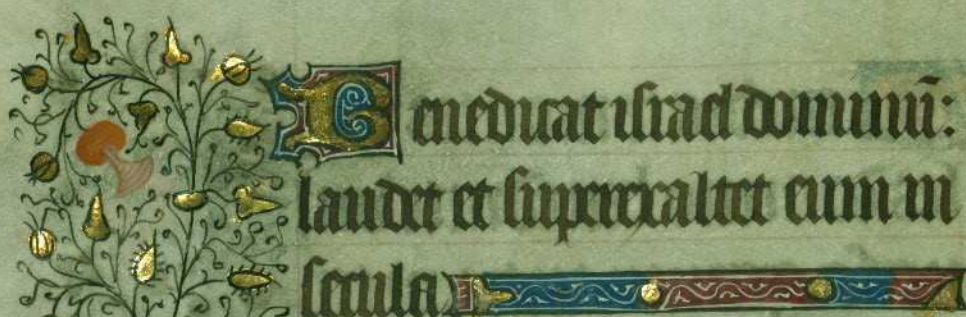 Benedicat israel dominū:
laudet et superexaltet eum in
secula